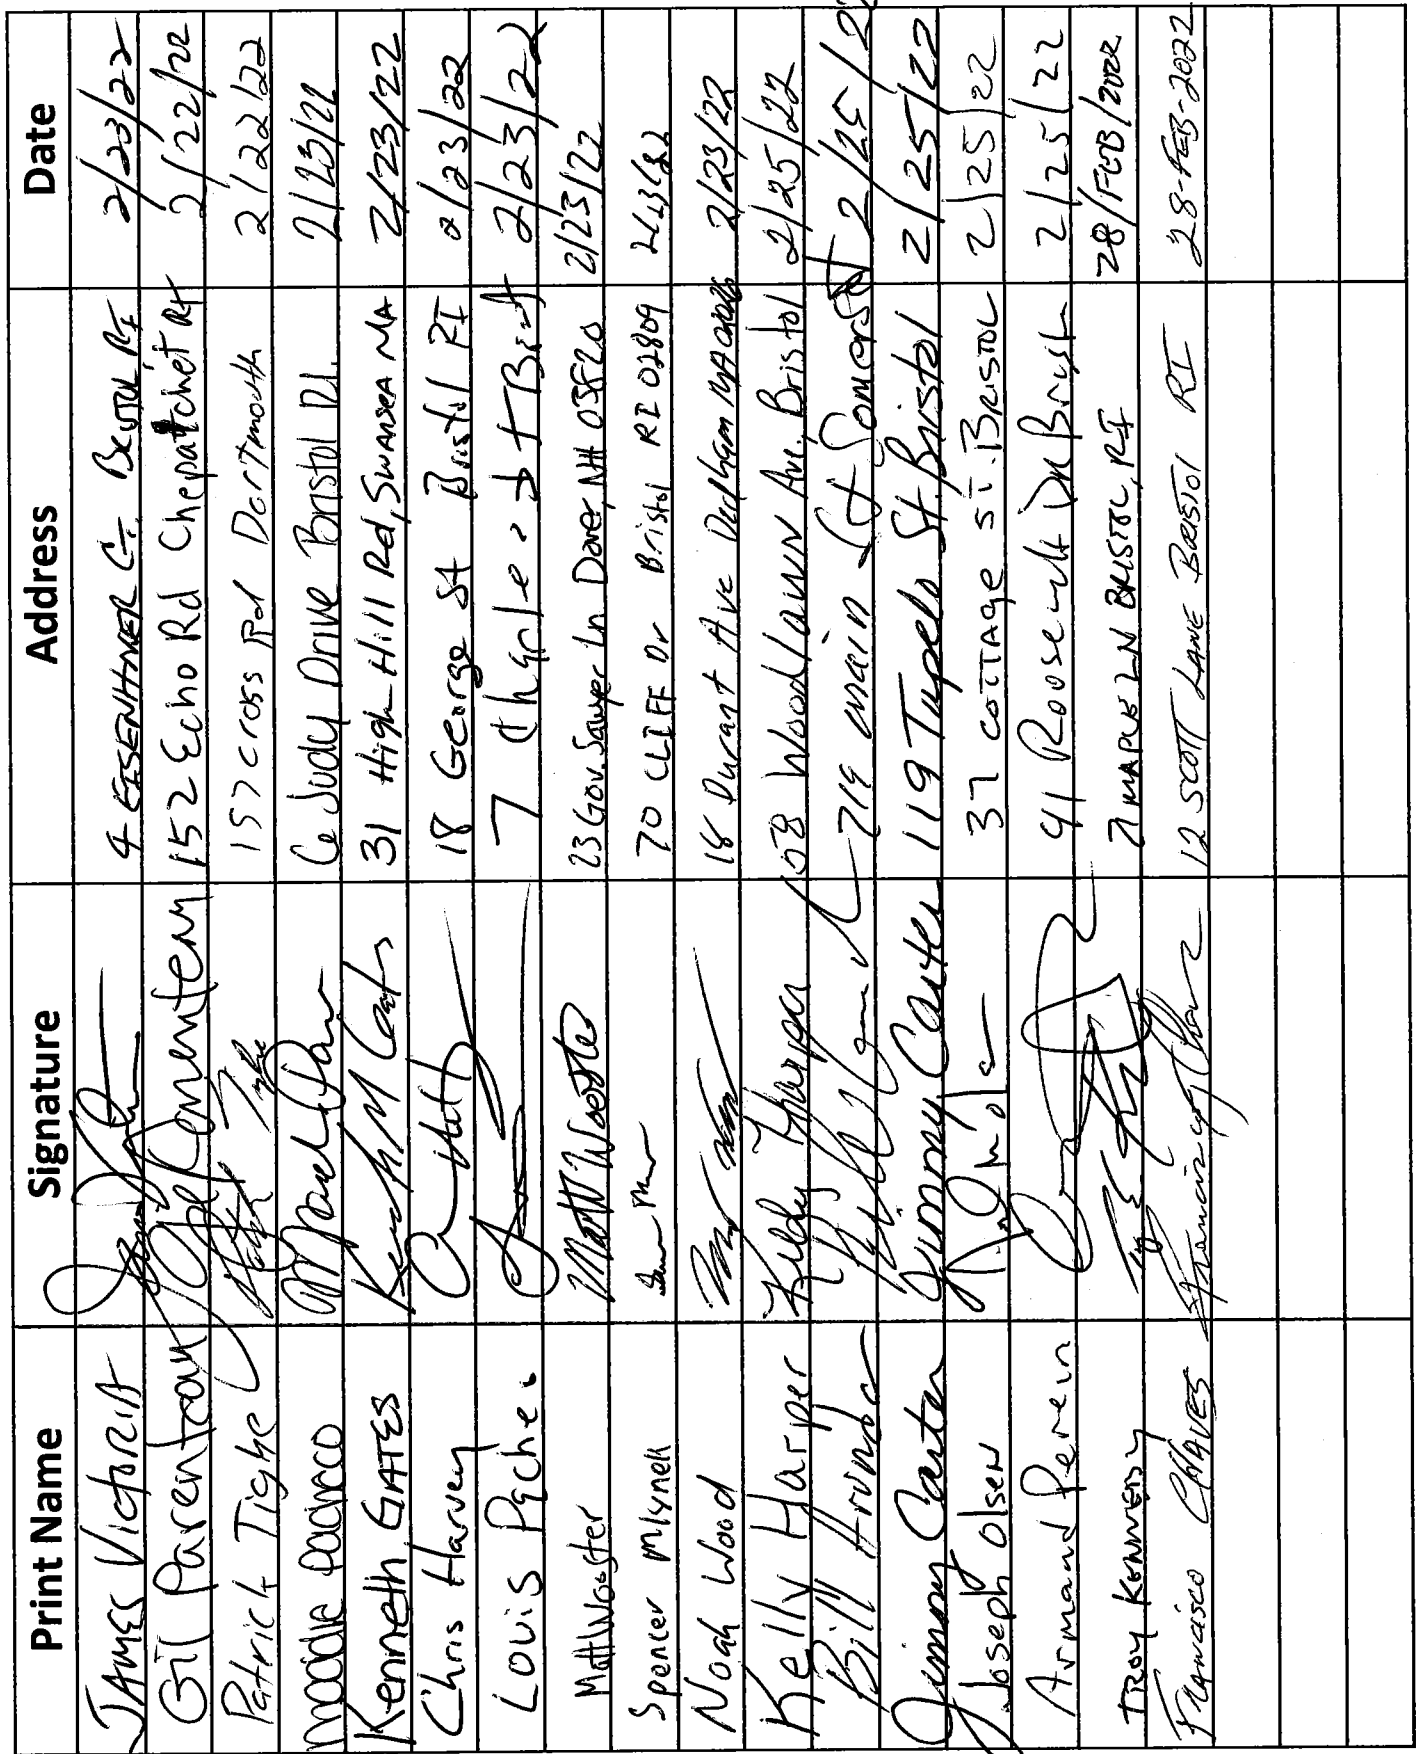 Print Name Signature Address Date
JAMES VICTORIA 4 EISENHAWER CT. BRISTOL RI 2/23/22
Gil Parenteau 152 Echo Rd Chepatchet RI 2/22/22
Patrick Tighe 157 cross Rd Dartmouth 2/22/22
pacheco Judy Drive Bristol RI. 2/23/22
Kenneth GATES 31 High Hill Rd, SWANSEA MA 2/23/22
Chris Harvey 18 George St Bristol RI 2/23/22
LOUIS 7 2/23/22
Matt Wooster Matt Wooster 23 Gov. Sawyer Ln Dover, NH 03820 2/23/22
Spencer Mlynek 70 CLIFF Dr Bristol RI 02809 2/23/22
Noah Wood 18 Durant Ave Dedham MA 2/23/22
Kelly Harper Kelly Harper 58 Woodlawn Ave. Bristol 2/25/22
Bill 719 main St Somerset 2/25/22
Jimmy Carter Jimmy Carter 119 Tupelo St. Bristol 2/25/22
Joseph Olsen 37 COTTAGE ST. BRISTOL 2/25/22
Armand 41 Roosevelt Dr Bristol 2/25/22
TROY KENNEDY 7 MAPLE LN BRISTOL, RI 28/FEB/2022
Francisco CHAVES 12 SCOTT LANE BRISTOL RI 28-FEB-2022